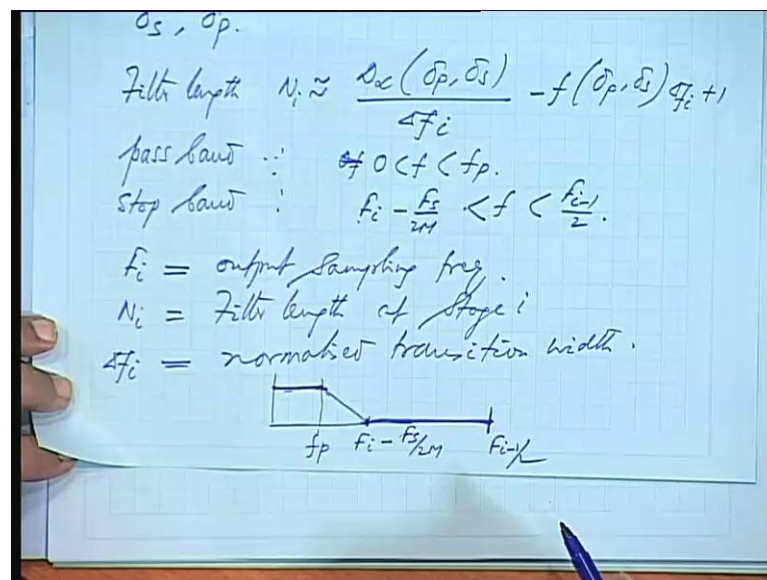 δs, δp.
Filter length Ni ≈ D∝(δp, δs) / Δfi − f(δp, δs) Δfi + 1
pass band : 0 < f < fp.
Stop band : Fi − Fs/2M < f < Fi-1/2.
Fi = output sampling freq.
Ni = Filter length at stage i
Δfi = normalised transition width.
fp Fi − Fs/2M Fi-1/2